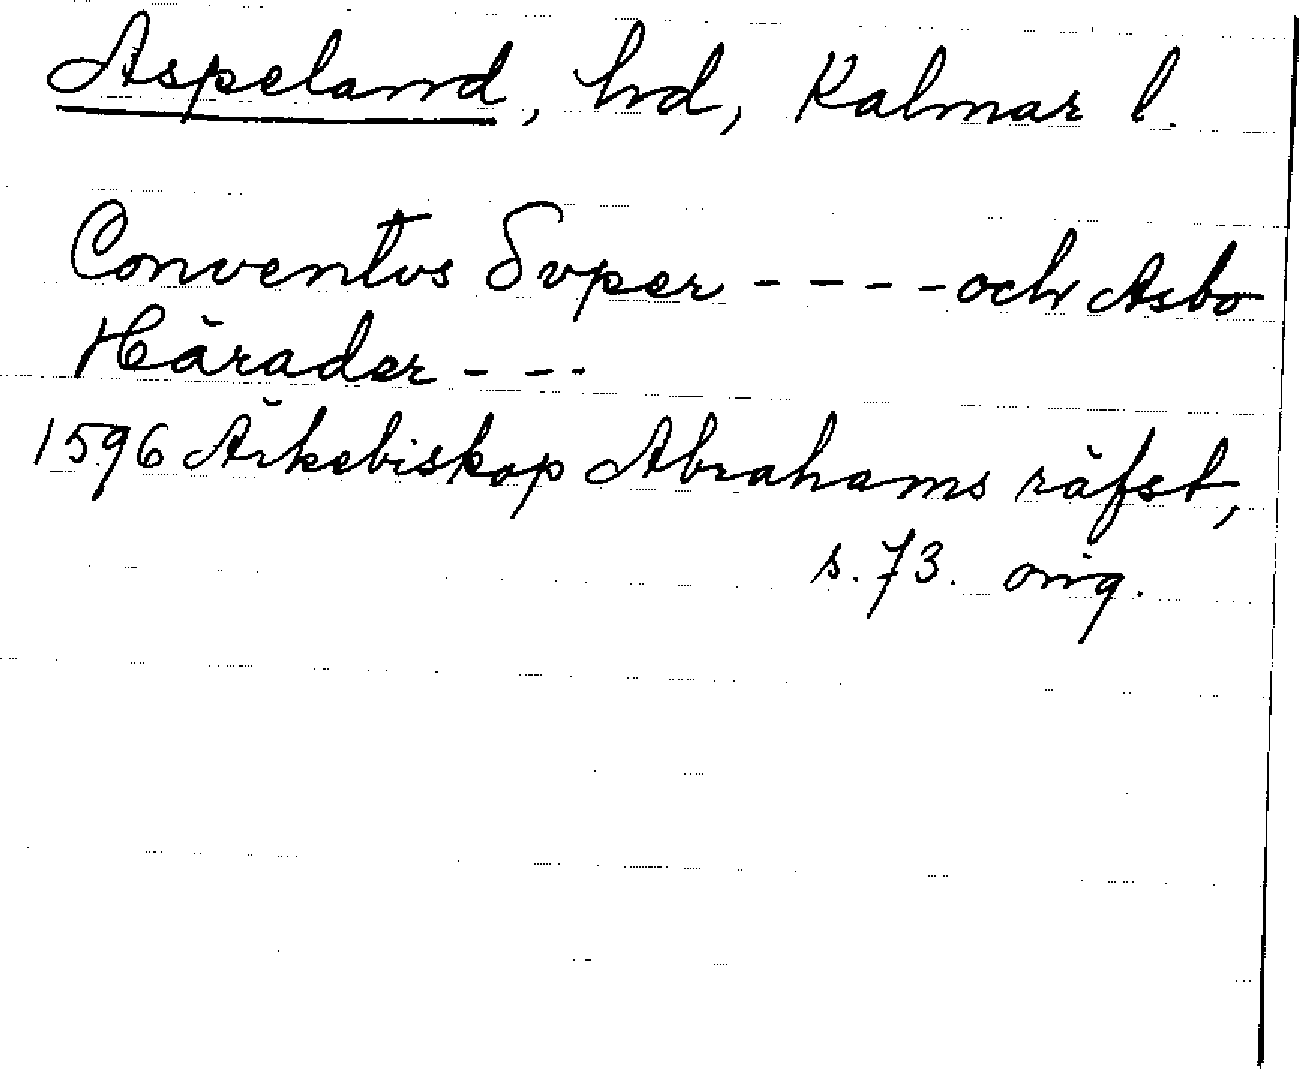 Aspeland, hd, Kalmar l.
Conventus Super - - - - och Asbo
Härader - - -
1596 Ärkebiskop Abrahams räfst,
s. 73. orig.